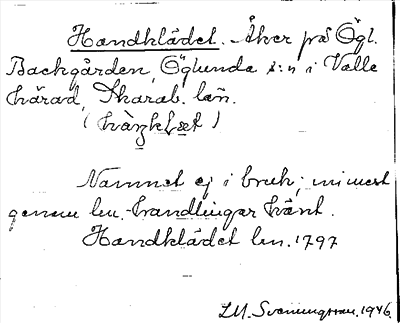 Handklädet. Åker på Ögl.
Backgården, Öglunda s:n i Valle
härad, Skarab. län.
Namnet ej i bruk; minnest
genom lm.-handlingar känt.
Handklädet lm. 1797
I.M. Svenungsson. 1946.